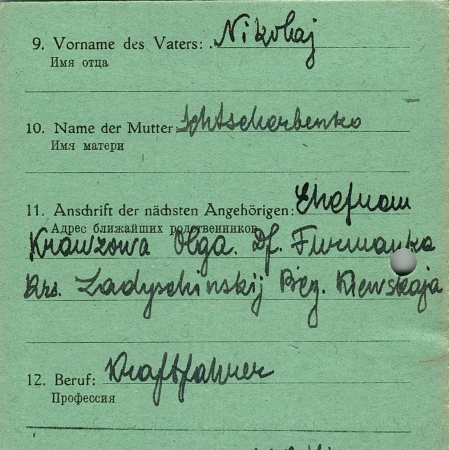 9. Vorname des Vaters: Nikolaj
Имя отца
10. Name der Mutter Schtscherbenko
Имя матери
11. Anschrift der nächsten Angehörigen: Ehefrau
Адрес ближайших родственников
Krawzowa Olga. Df. Furmanka
Krs. Ladyschinskij Bez. Kiewskaja
12. Beruf: Kraftfahrer
Профессия